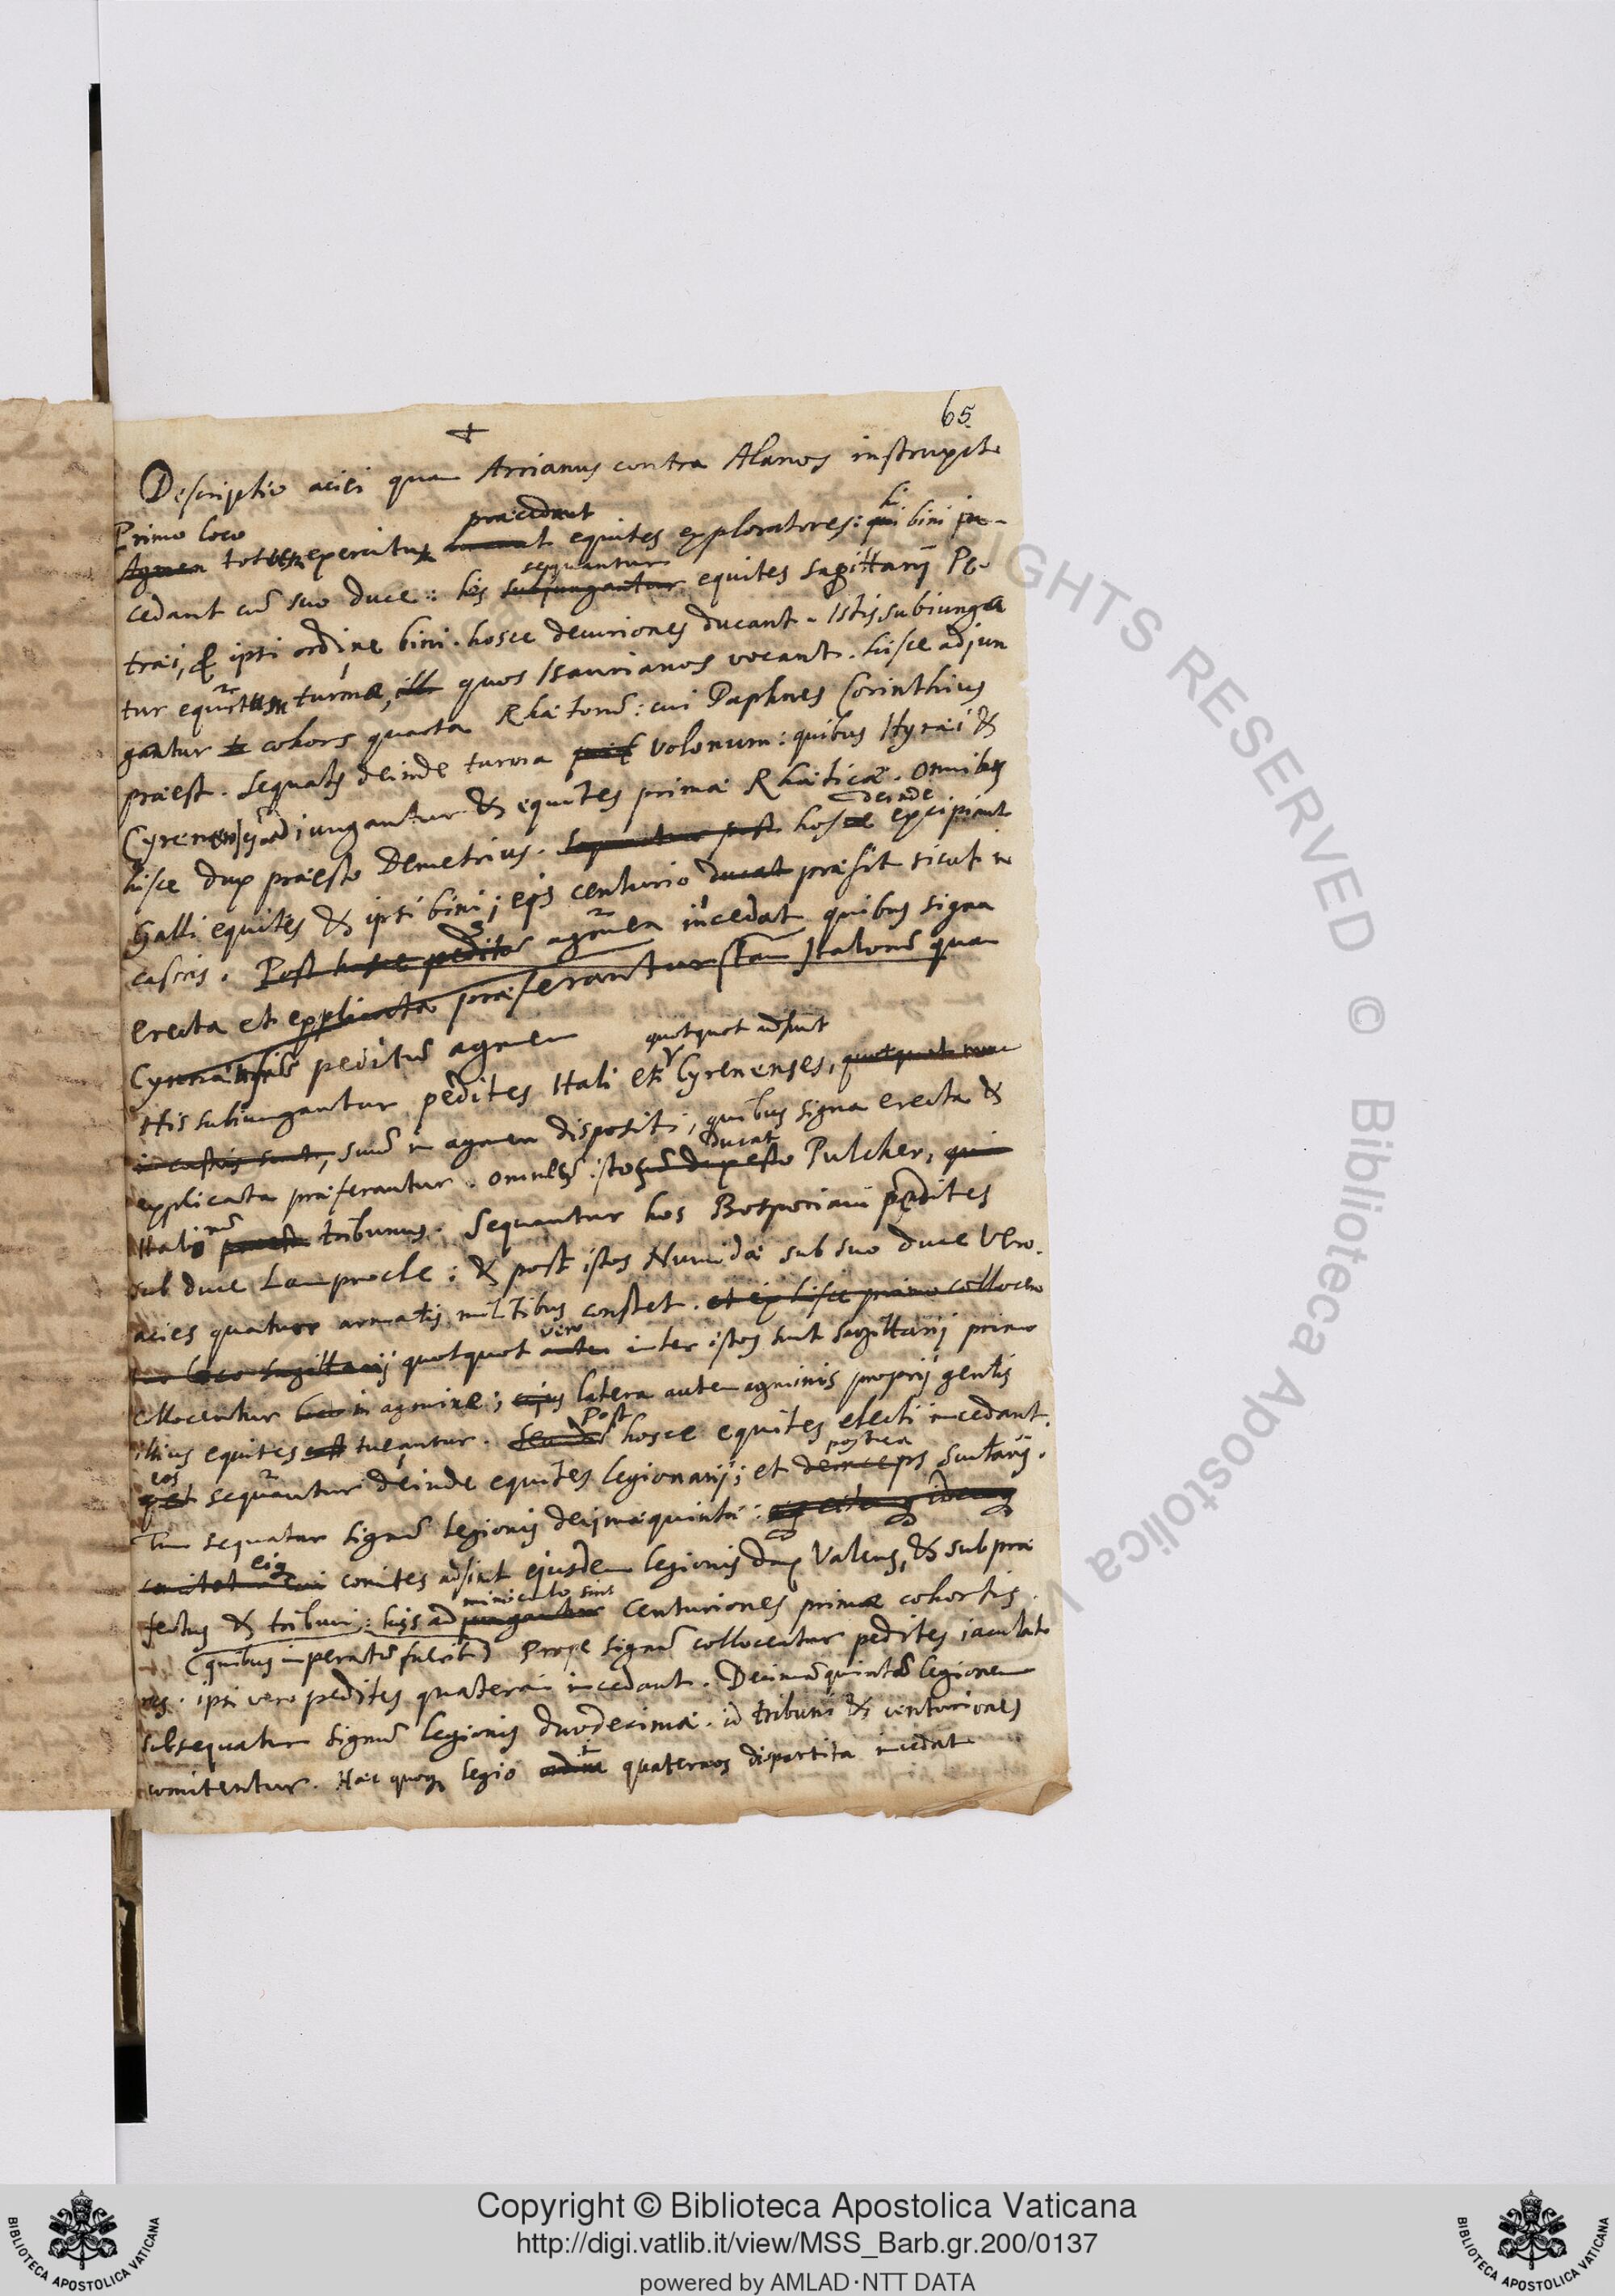 65
Descriptio aciei quam Arrianus contra Alanos instruxit
Primo loco praecedant hi
Agmen totum exercitus equites exploratores: qui bini in-
cedant cū suo duce: his subjungantur sequantur equites sagittarij Pe-
trai, & ipsi ordine bini. hosce decuriones ducant. Istis subiungā
tur equitum turmae, ill quos Isaurianos vocant. hisce adjun
gantur cohors quarta Rhaetorū: cui Daphnes Corinthius
praest. sequatr deinde turma volonum: quibus Ityraei &
Cyrenensij adiungantur & equites primae Rhaeticae. omnibus
hisce dux praesto Demetrius. sequantur post hosce deinde excipiant
Galli equites & ipsi bini; eis centurio ducat praesit sicut in
castris. Post hosce peditū agmen incedat quibus signa
erecta et explicata praeferantur (tam Italorū quam
peditū agmen
His subiungantur pedites Itali et Cyrenenses, quotquot adsunt
in castris sunt, suū in agmen dispositi, quibus signa erecta &
explicata praeferantur. omniū ducat Pulcher, qui
Italorū praest tribunus. Sequantur hos Bosporiani pedites
sub duce Lamprocle: & post istos Numidae sub suo duce Vero.
acies quatuor armatis militibus constet. et ex hisce primo colloцен
tur loco sagittarij quotquot vero inter istos sunt sagittarij primo
collocentur loco in agmine; latera autem agminis proprij gentis
illius equites tueantur. Post hosce equites electi incedant.
eos sequantur deinde equites legionarij; et deinceps postea
Tum sequatur signū legionis decimaequintae:
comites adsint ejusdem legionis dux Valens, & subprae
fectus & tribuni: hijs adminiculo sint centuriones primae cohortis.
(quibus imperatū fuerit) Prope signū collocentur pedites iaculato
res. ipsi vero pedites quaterni incedant. Decimāquintā legionem
subsequatur signū legionis duodecimae. id tribuni & centuriones
comitentur. Haec quoq; legio quaternos dispartita incedat
Copyright © Biblioteca Apostolica Vaticana
http://digi.vatlib.it/view/MSS_Barb.gr.200/0137
powered by AMLAD·NTT DATA
BIBLIOTECA APOSTOLICA VATICANA
BIBLIOTECA APOSTOLICA VATICANA
RIGHTS RESERVED © Biblioteca Apostolica